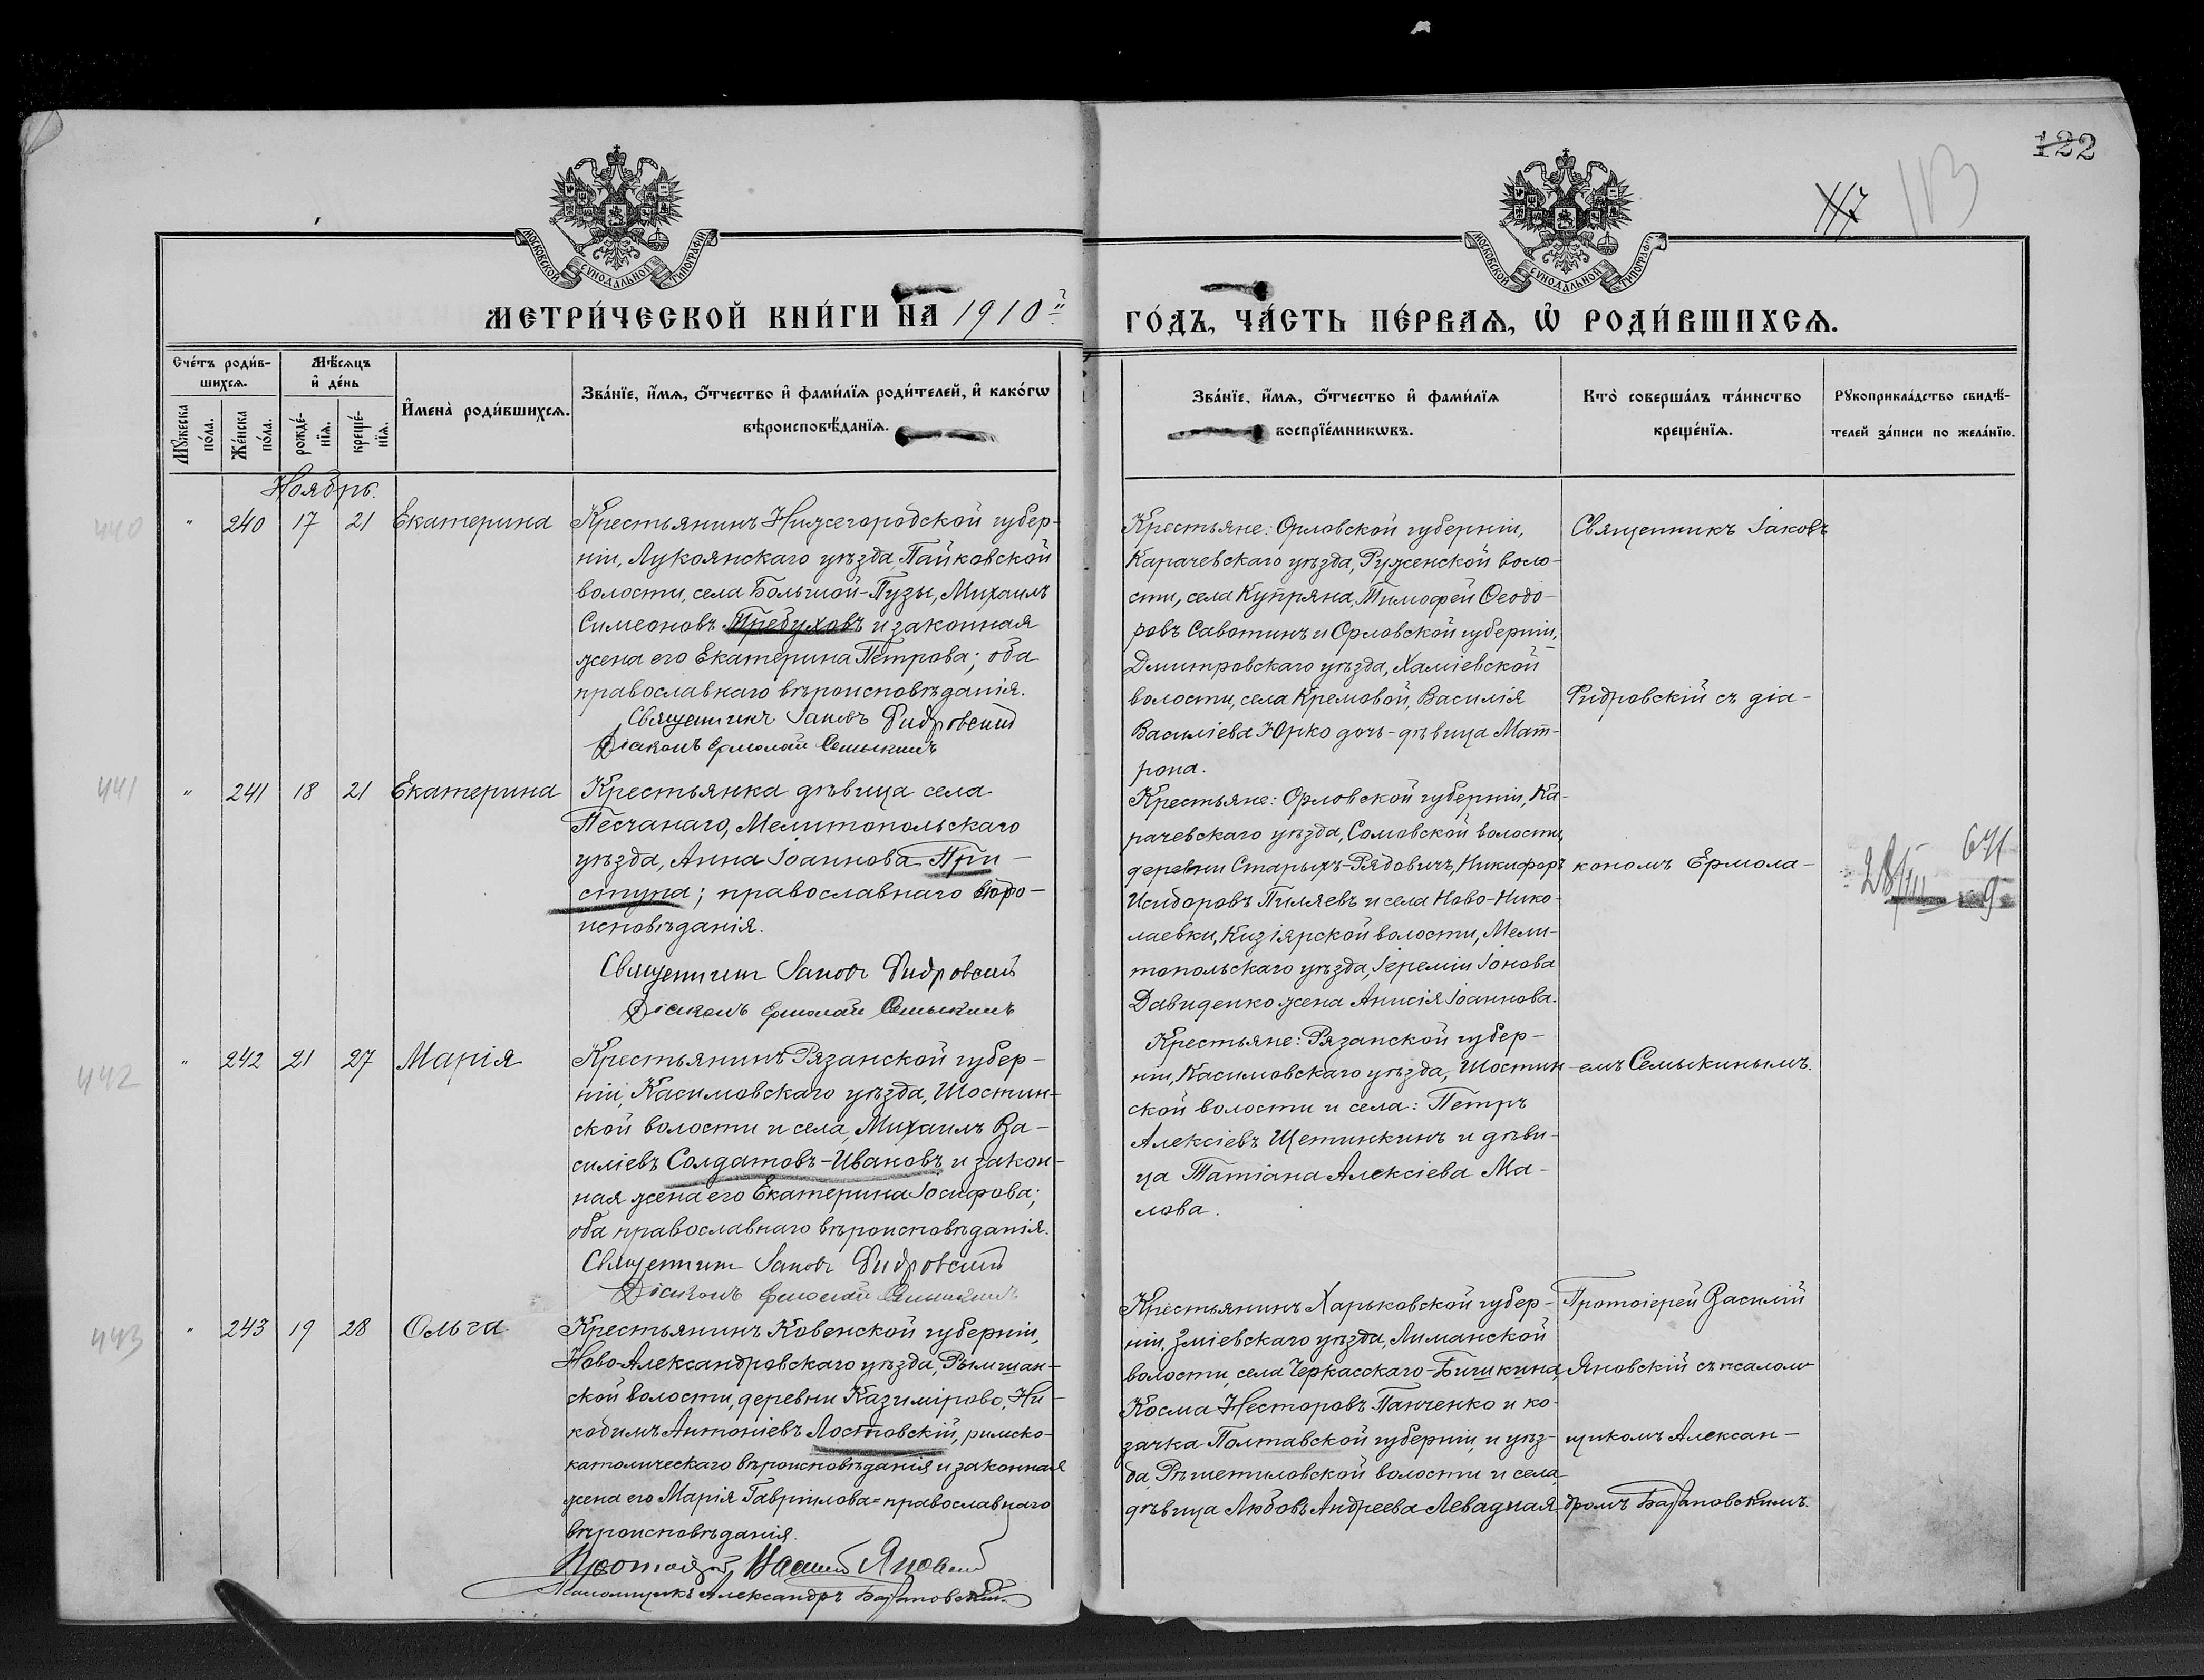 122
117
113
МОСКОВСКОЙ СѴНОДАЛЬНОЙ ТИПОГРАФІИ
МОСКОВСКОЙ СѴНОДАЛЬНОЙ ТИПОГРАФІИ
МЕТРИ́ЧЕСКОЙ КНИ́ГИ НА 1910й
ГО́ДЪ, ЧА́СТЬ ПЕ́РВАѦ, Ѡ҆ РОДИ́ВШИХСѦ.
Сче́тъ роди́в-
шихсѧ.
Мѣ́сѧцъ
и҆ де́нь
Мꙋ́жеска
по́ла.
Же́нска
по́ла.
рожде́-
нїѧ.
креще́-
нїѧ.
И҆мена̀ роди́вшихсѧ.
Зва́нїе, и҆́мѧ, ѻ҆́тчество и҆ фами́лїѧ роди́телей, и҆ како́гѡ
вѣроисповѣ́данїѧ.
Зва́нїе, и҆́мѧ, ѻ҆́тчество и҆ фами́лїѧ
воспрїе́мникѡвъ.
Кто̀ соверша́лъ та́инство
креще́нїѧ.
Рꙋкоприкла́дство свидѣ́-
телей за́писи по жела́нїю.
Ноябрь.
440
" 240 17 21 Екатерина
Крестьянинъ Нижегородской губер-
ніи, Лукоянскаго уѣзда, Пайковской
волости, села Большой-Пузы, Михаилъ
Симеоновъ Требуховъ и законная
жена его Екатерина Петрова; оба
православнаго вѣроисповѣданія.
Священникъ Іаковъ Ридровский
Діаконъ Ермолай Семыкинъ
Крестьяне: Орловской губерніи,
Карачевскаго уѣзда, Руженской воло-
сти, села Купряна, Тимофей Ѳеодо-
ровъ Савотинъ и Орловской губерніи,
Дмитровскаго уѣзда, Халчевской
волости, села Кремовой, Василія
Василіева Юрко дочь-дѣвица Мат-
рона.
Священникъ Іаковъ
Ридровскій съ діа-
441
" 241 18 21 Екатерина
Крестьянка дѣвица села
Песчанаго, Мелитопольскаго
уѣзда, Анна Іоаннова При-
ступа; православнаго вѣро-
исповѣданія.
Священникъ Іаковъ Ридровский
Діаконъ Ермолай Семыкинъ
Крестьяне: Орловской губерніи, Ка-
рачевскаго уѣзда, Сомовской волости,
деревни Старыхъ-Рядовичъ, Никифоръ
Исидоровъ Пиляевъ и села Ново-Нико-
лаевки, Кизіярской волости, Мели-
топольскаго уѣзда, Іереміи Іонова
Давиденко жена Анисія Іоаннова.
кономъ Ермола-
671
28/III 9
442
" 242 21 27 Марія
Крестьянинъ Рязанской губер-
ніи, Касимовскаго уѣзда, Шостин-
ской волости и села, Михаилъ Ва-
силіевъ Солдатовъ-Ивановъ и закон-
ная жена его Екатерина Іосифова;
оба православнаго вѣроисповѣданія.
Священникъ Іаковъ Ридровский
Діаконъ Ермолай Семыкинъ
Крестьяне: Рязанской губер-
ніи, Касимовскаго уѣзда, Шостин-
ской волости и села: Петръ
Алексіевъ Щетинкинъ и дѣви-
ца Татіана Алексіева Ма-
лова.
емъ Семыкинымъ.
443
" 243 19 28 Ольга
Крестьянинъ Ковенской губерніи,
Ново-Александровскаго уѣзда, Рымшан-
ской волости, деревни Казимірово, Ни-
кодимъ Антоніевъ Лостовскій, римско-
католическаго вѣроисповѣданія и законная
жена его Марія Гавріилова-православнаго
вѣроисповѣданія.
Протоіерей Василій Яновскій
Псаломщикъ Александръ
Крестьянинъ Харьковской губер-
ніи, Зміевскаго уѣзда, Лиманской
волости, села Черкасскаго-Бишкина,
Косма Несторовъ Панченко и ко-
зачка Полтавской губерніи и уѣз-
да, Рѣшетиловской волости и села,
дѣвица Любовь Андреева Левадная.
Протоіерей Василій
Яновскій съ псалом-
щикомъ Алексан-
дромъ